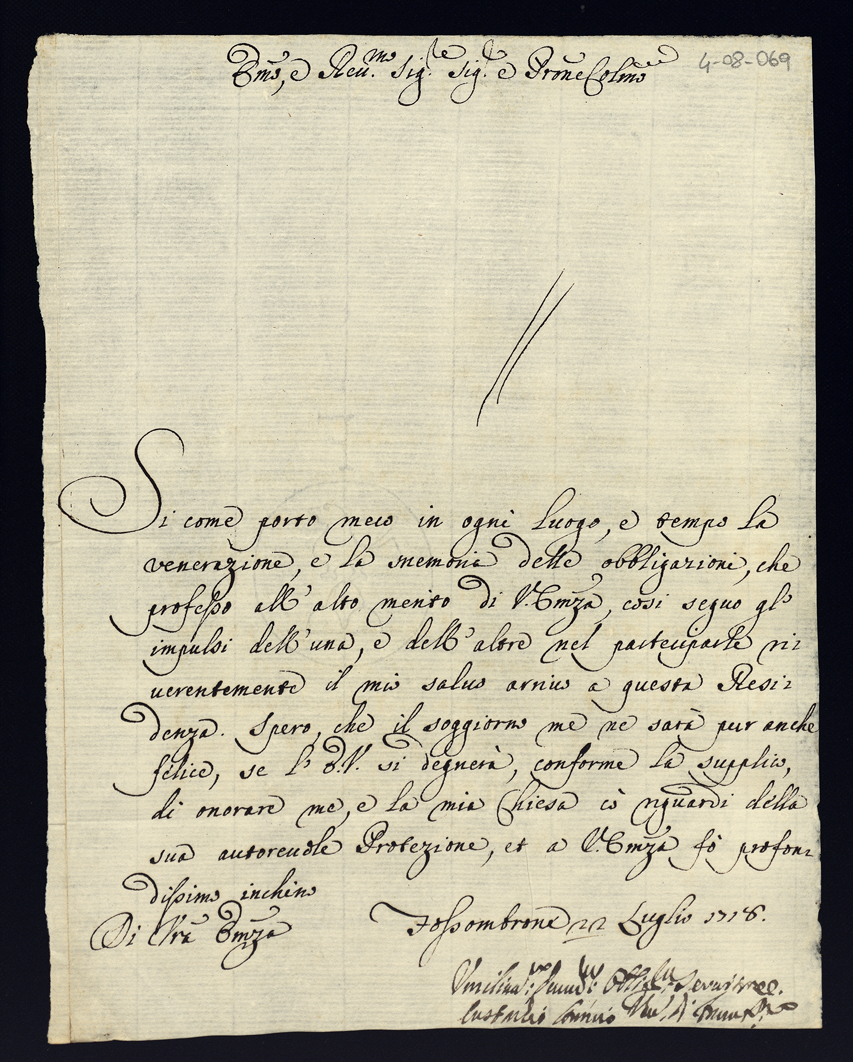 Emo, e Reu.mo Sig.re Sig.r e Prone Colmo
4-08-069
Si come porto meco in ogni luogo, e tempo la
venerazione, e la memoria delle obbligazioni, che
professo all'alto merito di V. Emza, così seguo gl'
impulsi dell'una, e dell'altre nel partecìparle ri=
uerentemente il mio saluo arriuo a questa Resi=
denza. Spero, che il soggiorno me ne sarà pur anche
felice, se l'E.V. si degnerà, conforme la supplico,
di onorare me, e la mia Chiesa cò riguardi della
sua autoreuole Protezione, et a V. Emza fò profon=
dissimo inchino
Di Vra Emza
Fossombrone 22 Luglio 1718.